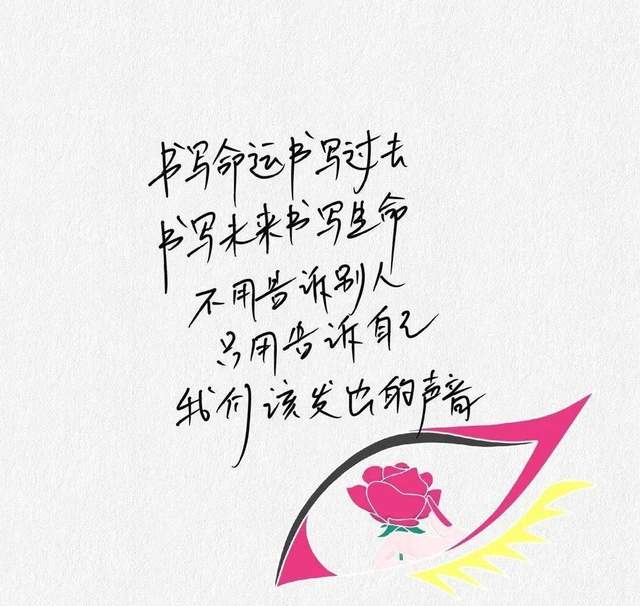 书写命运书写过去
书写未来书写生命
不用告诉别人
只用告诉自己
我们该发出的声音